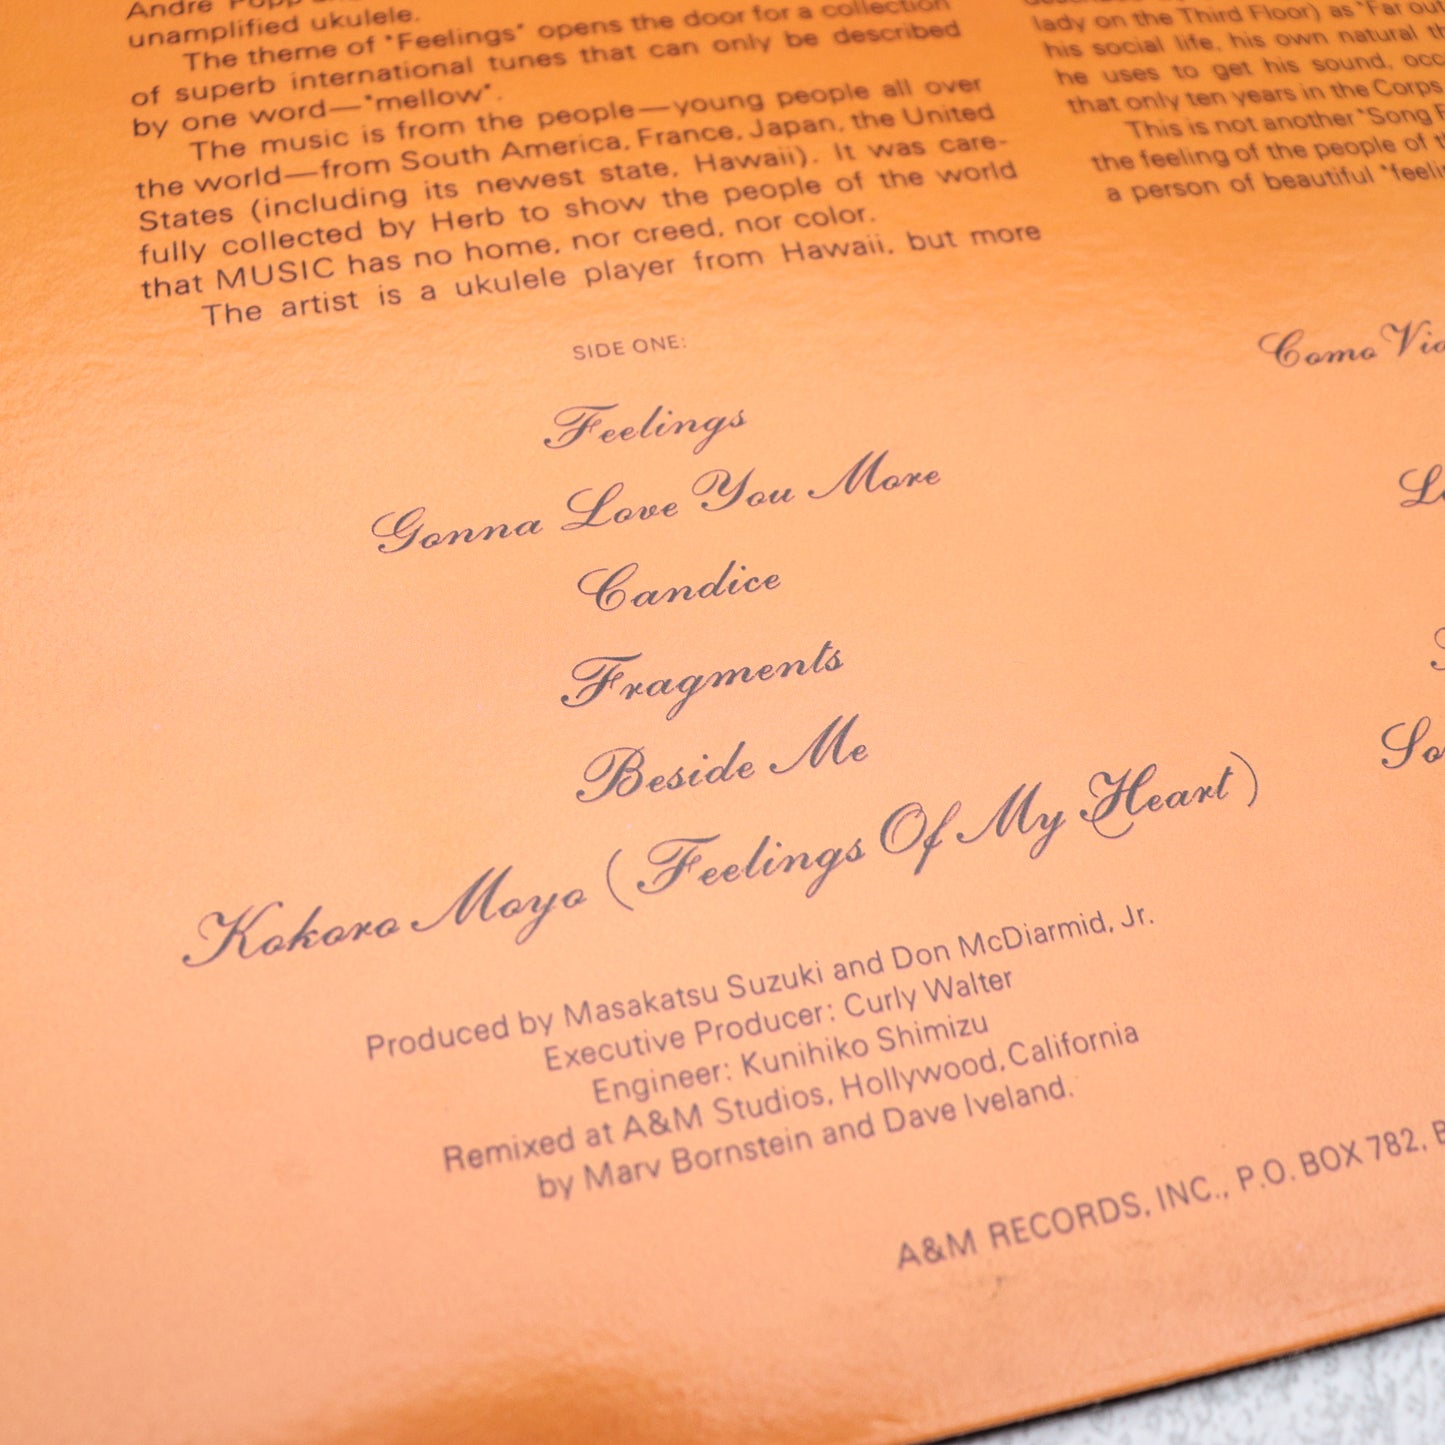 André Popp
unamplified ukulele.
The theme of "Feelings" opens the door for a collection
of superb international tunes that can only be described
by one word—"mellow".
The music is from the people—young people all over
the world—from South America, France, Japan, the United
States (including its newest state, Hawaii). It was care-
fully collected by Herb to show the people of the world
that MUSIC has no home, nor creed, nor color.
The artist is a ukulele player from Hawaii, but more
lady on the Third Floor) as "Far out
his social life, his own natural
he uses to get his sound,
that only ten years in the Corps
This is not another "Song
the feeling of the people of
a person of beautiful
SIDE ONE:
Feelings
Gonna Love You More
Candice
Fragments
Beside Me
Kokoro Moyo (Feelings Of My Heart)
Como
Produced by Masakatsu Suzuki and Don McDiarmid, Jr.
Executive Producer: Curly Walter
Engineer: Kunihiko Shimizu
Remixed at A&M Studios, Hollywood, California
by Marv Bornstein and Dave Iveland.
A&M RECORDS, INC., P.O. BOX 782,